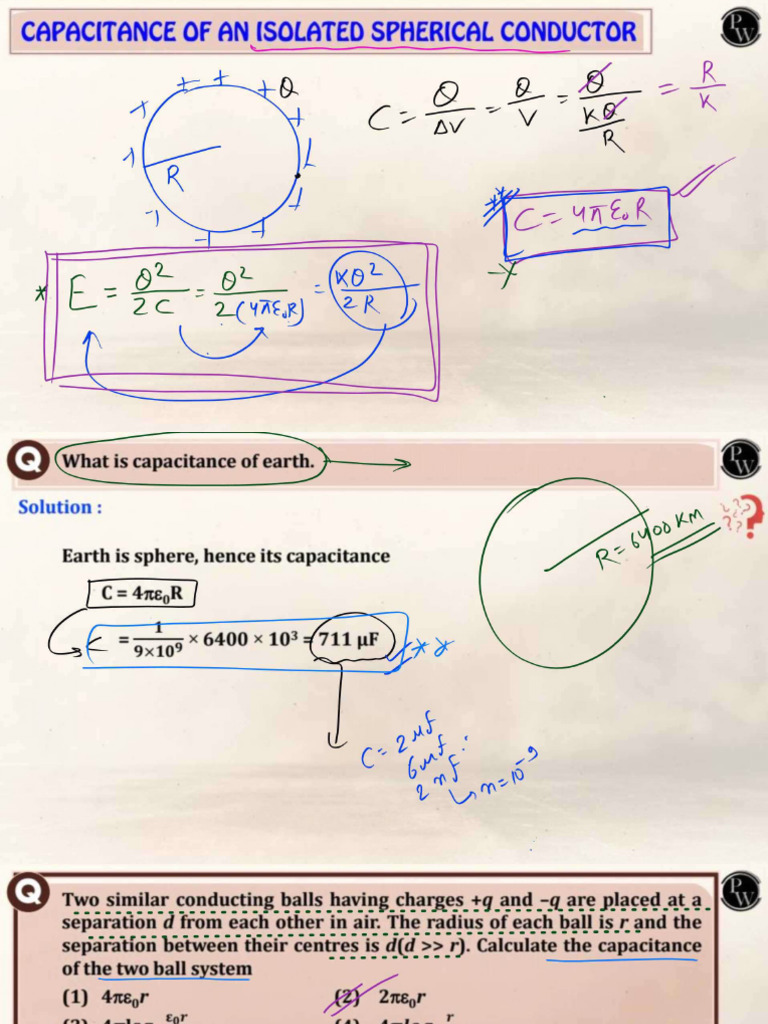 CAPACITANCE OF AN ISOLATED SPHERICAL CONDUCTOR
PW
Q
R
C = Q/ΔV = Q/V = Q/(KQ/R) = R/K
C = 4πε₀R
E = Q²/2C = Q²/2(4πε₀R) = KQ²/2R
Q What is capacitance of earth.
PW
Solution :
R = 6400 KM
Earth is sphere, hence its capacitance
C = 4πε₀R
= 1/9×10⁹ × 6400 × 10³ = 711 μF
C = 2μf
6μf
2nf
n = 10⁻⁹
Q Two similar conducting balls having charges +q and –q are placed at a
PW
separation d from each other in air. The radius of each ball is r and the
separation between their centres is d(d >> r). Calculate the capacitance
of the two ball system
(1) 4πε₀r (2) 2πε₀r